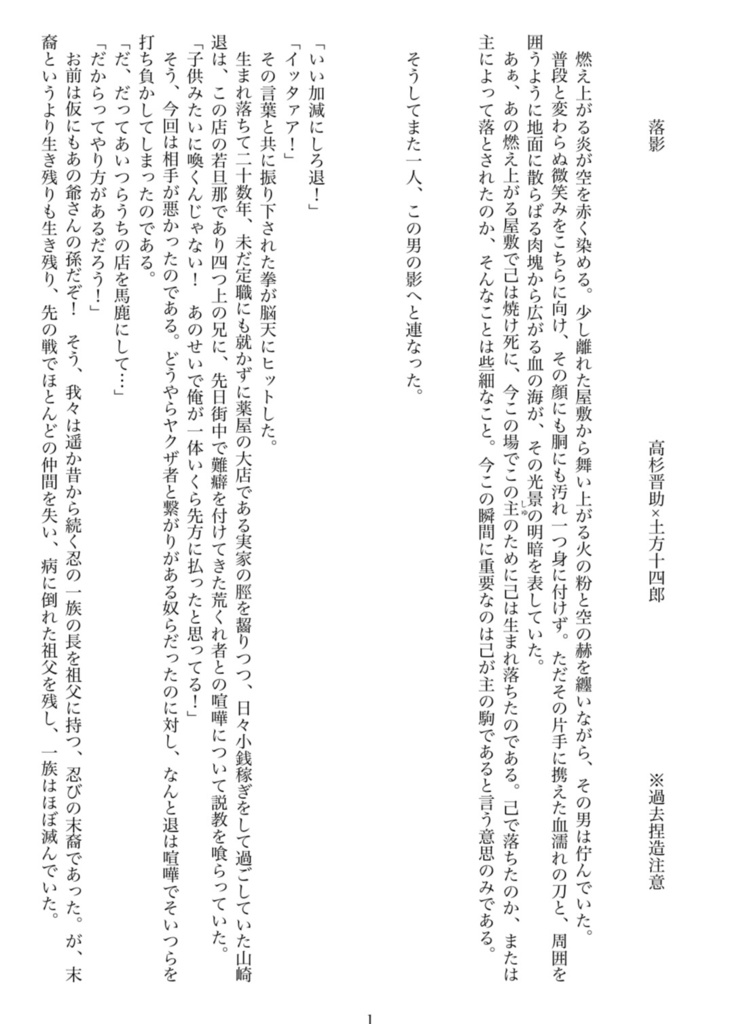 落影　高杉晋助×土方十四郎　※過去捏造注意
燃え上がる炎が空を赤く染める。少し離れた屋敷から舞い上がる火の粉と空の赫を纏いながら、その男は佇んでいた。
普段と変わらぬ微笑みをこちらに向け、その顔にも胴にも汚れ一つ身に付けず。ただその片手に携えた血濡れの刀と、周囲を
囲うように地面に散らばる肉塊から広がる血の海が、その光景の明暗を表していた。
あぁ、あの燃え上がる屋敷で己は焼け死に、今この場でこの主のために己は生まれ落ちたのである。己で落ちたのか、または
しゅ
主によって落とされたのか、そんなことは些細なこと。今この瞬間に重要なのは己が主の駒であると言う意思のみである。
そうしてまた一人、この男の影へと連なった。
「いい加減にしろ退！」
「イッタァア！」
その言葉と共に振り下された拳が脳天にヒットした。
生まれ落ちて二十数年、未だ定職にも就かずに薬屋の大店である実家の脛を齧りつつ、日々小銭稼ぎをして過ごしていた山崎
退は、この店の若旦那であり四つ上の兄に、先日街中で難癖を付けてきた荒くれ者との喧嘩について説教を喰らっていた。
「子供みたいに喚くんじゃない！　あのせいで俺が一体いくら先方に払ったと思ってる！」
そう、今回は相手が悪かったのである。どうやらヤクザ者と繋がりがある奴らだったのに対し、なんと退は喧嘩でそいつらを
打ち負かしてしまったのである。
「だ、だってあいつらうちの店を馬鹿にして…」
「だからってやり方があるだろう！」
お前は仮にもあの爺さんの孫だぞ！　そう、我々は遥か昔から続く忍の一族の長を祖父に持つ、忍びの末裔であった。が、末
裔というより生き残りも生き残り、先の戦でほとんどの仲間を失い、病に倒れた祖父を残し、一族はほぼ滅んでいた。
1